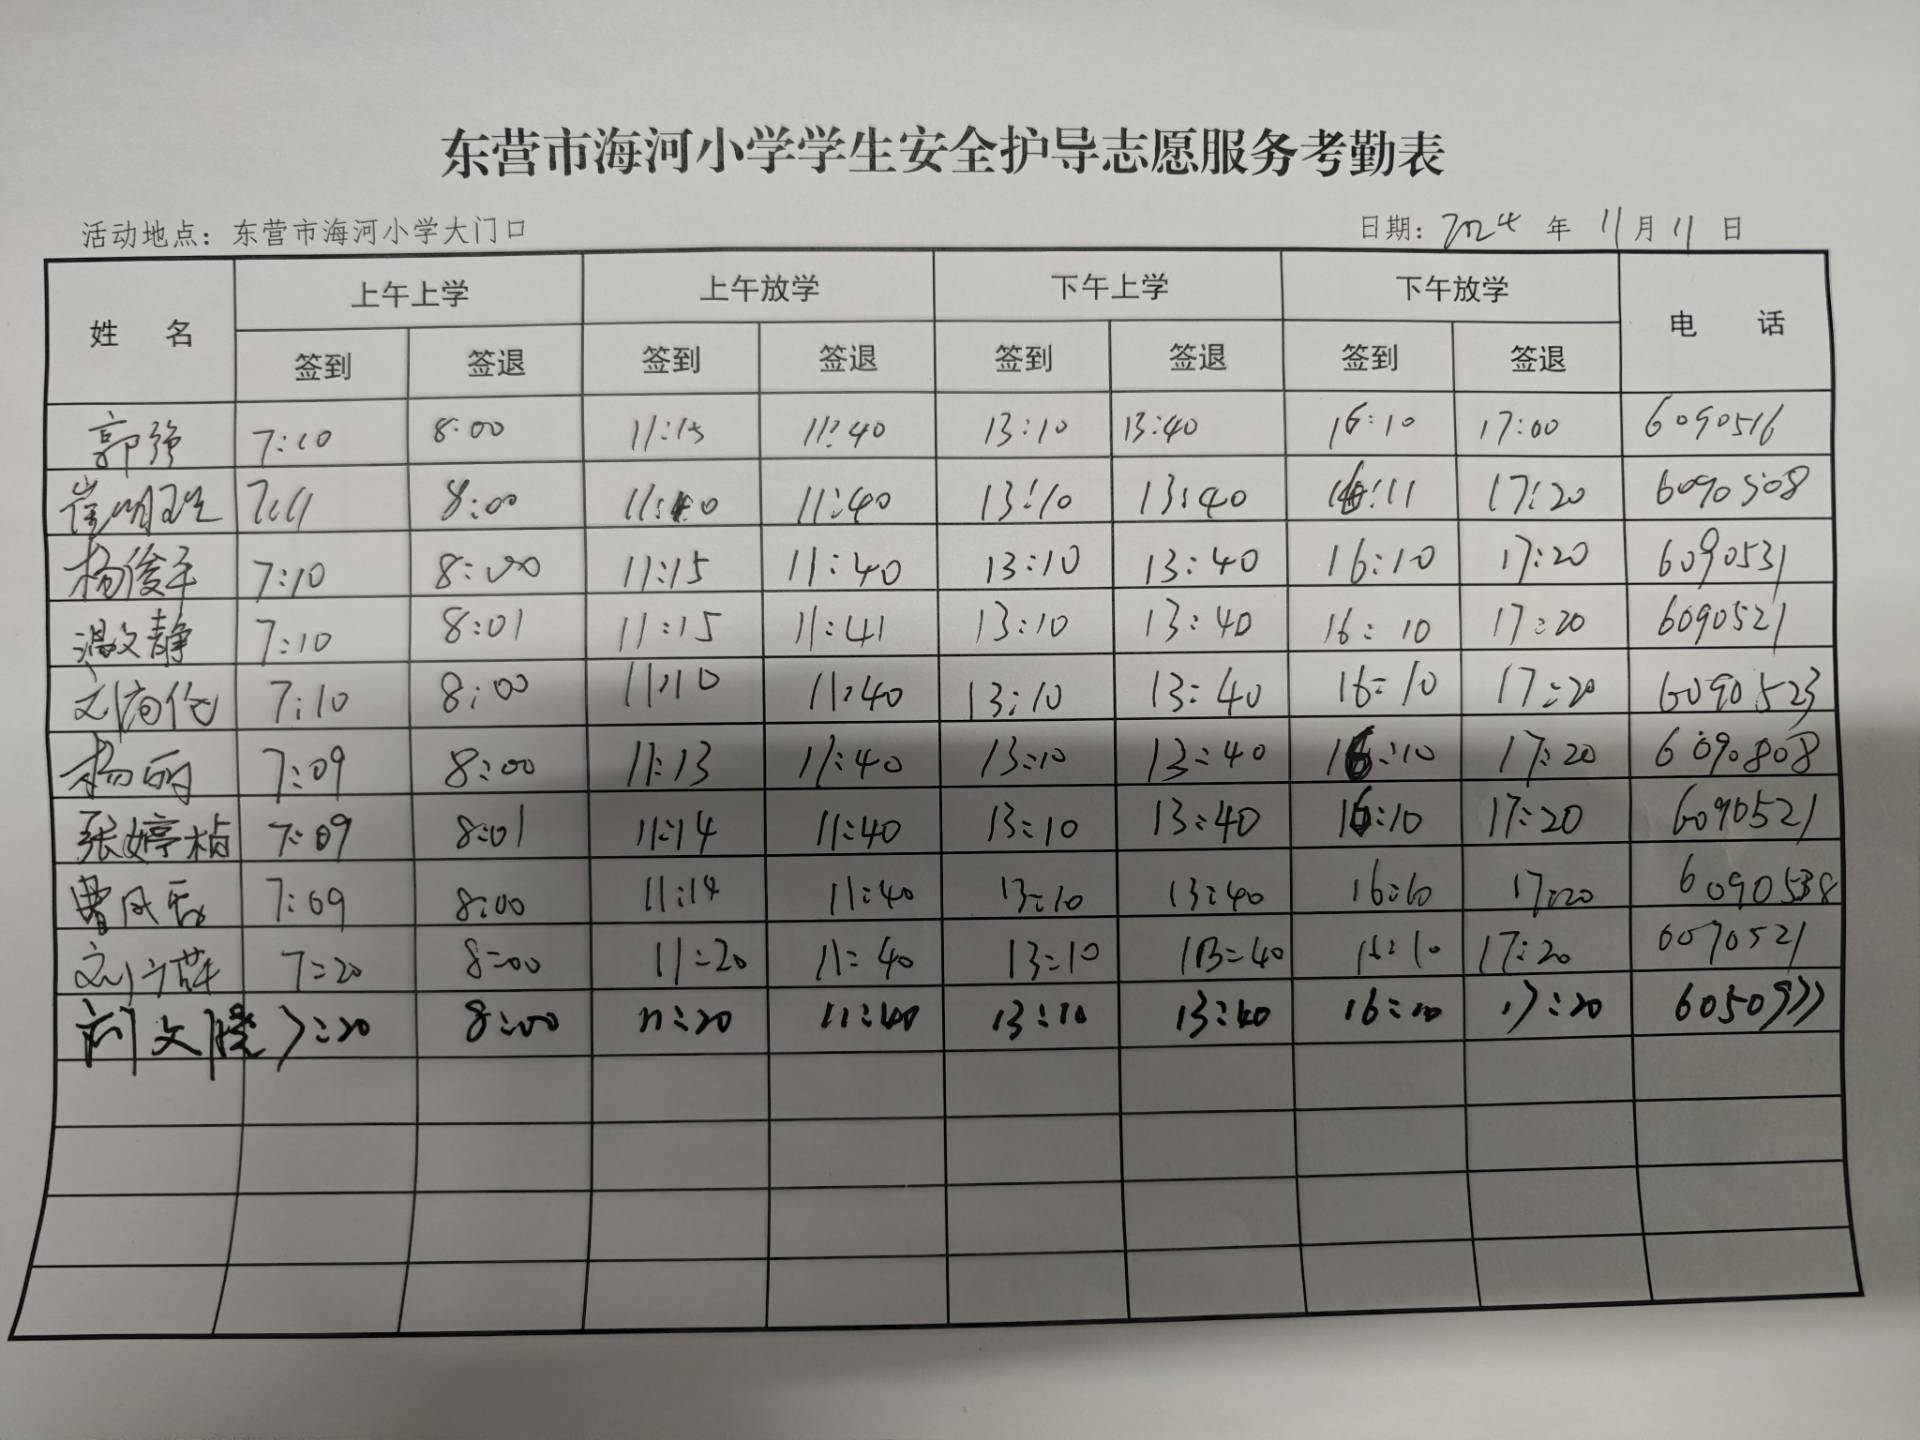 东营市海河小学学生安全护导志愿服务考勤表
活动地点：东营市海河小学大门口 日期：2024 年 11 月 11 日
姓 名 上午上学 上午放学 下午上学 下午放学 电 话
签到 签退 签到 签退 签到 签退 签到 签退
郭强 7:10 8:00 11:15 11:40 13:10 13:40 16:10 17:00 6090516
崔明 7:11 8:00 11:40 13:10 13:40 16:11 17:20 6090508
杨俊平 7:10 8:00 11:15 11:40 13:10 13:40 16:10 17:20 6090531
温文静 7:10 8:01 11:15 11:41 13:10 13:40 16:10 17:20 6090521
刘 7:10 8:00 11:10 11:40 13:10 13:40 16:10 17:20 6090523
杨丽 7:09 8:00 11:13 11:40 13:10 13:40 16:10 17:20 6090808
张婷楠 7:09 8:01 11:14 11:40 13:10 13:40 16:10 17:20 6090521
曹风 7:09 8:00 11:14 11:40 13:10 13:40 17:20 6090538
刘 7:20 8:00 11:20 11:40 13:10 13:40 16:10 17:20
刘文 7:20 8:00 11:20 11:40 13:10 13:40 16:10 17:20